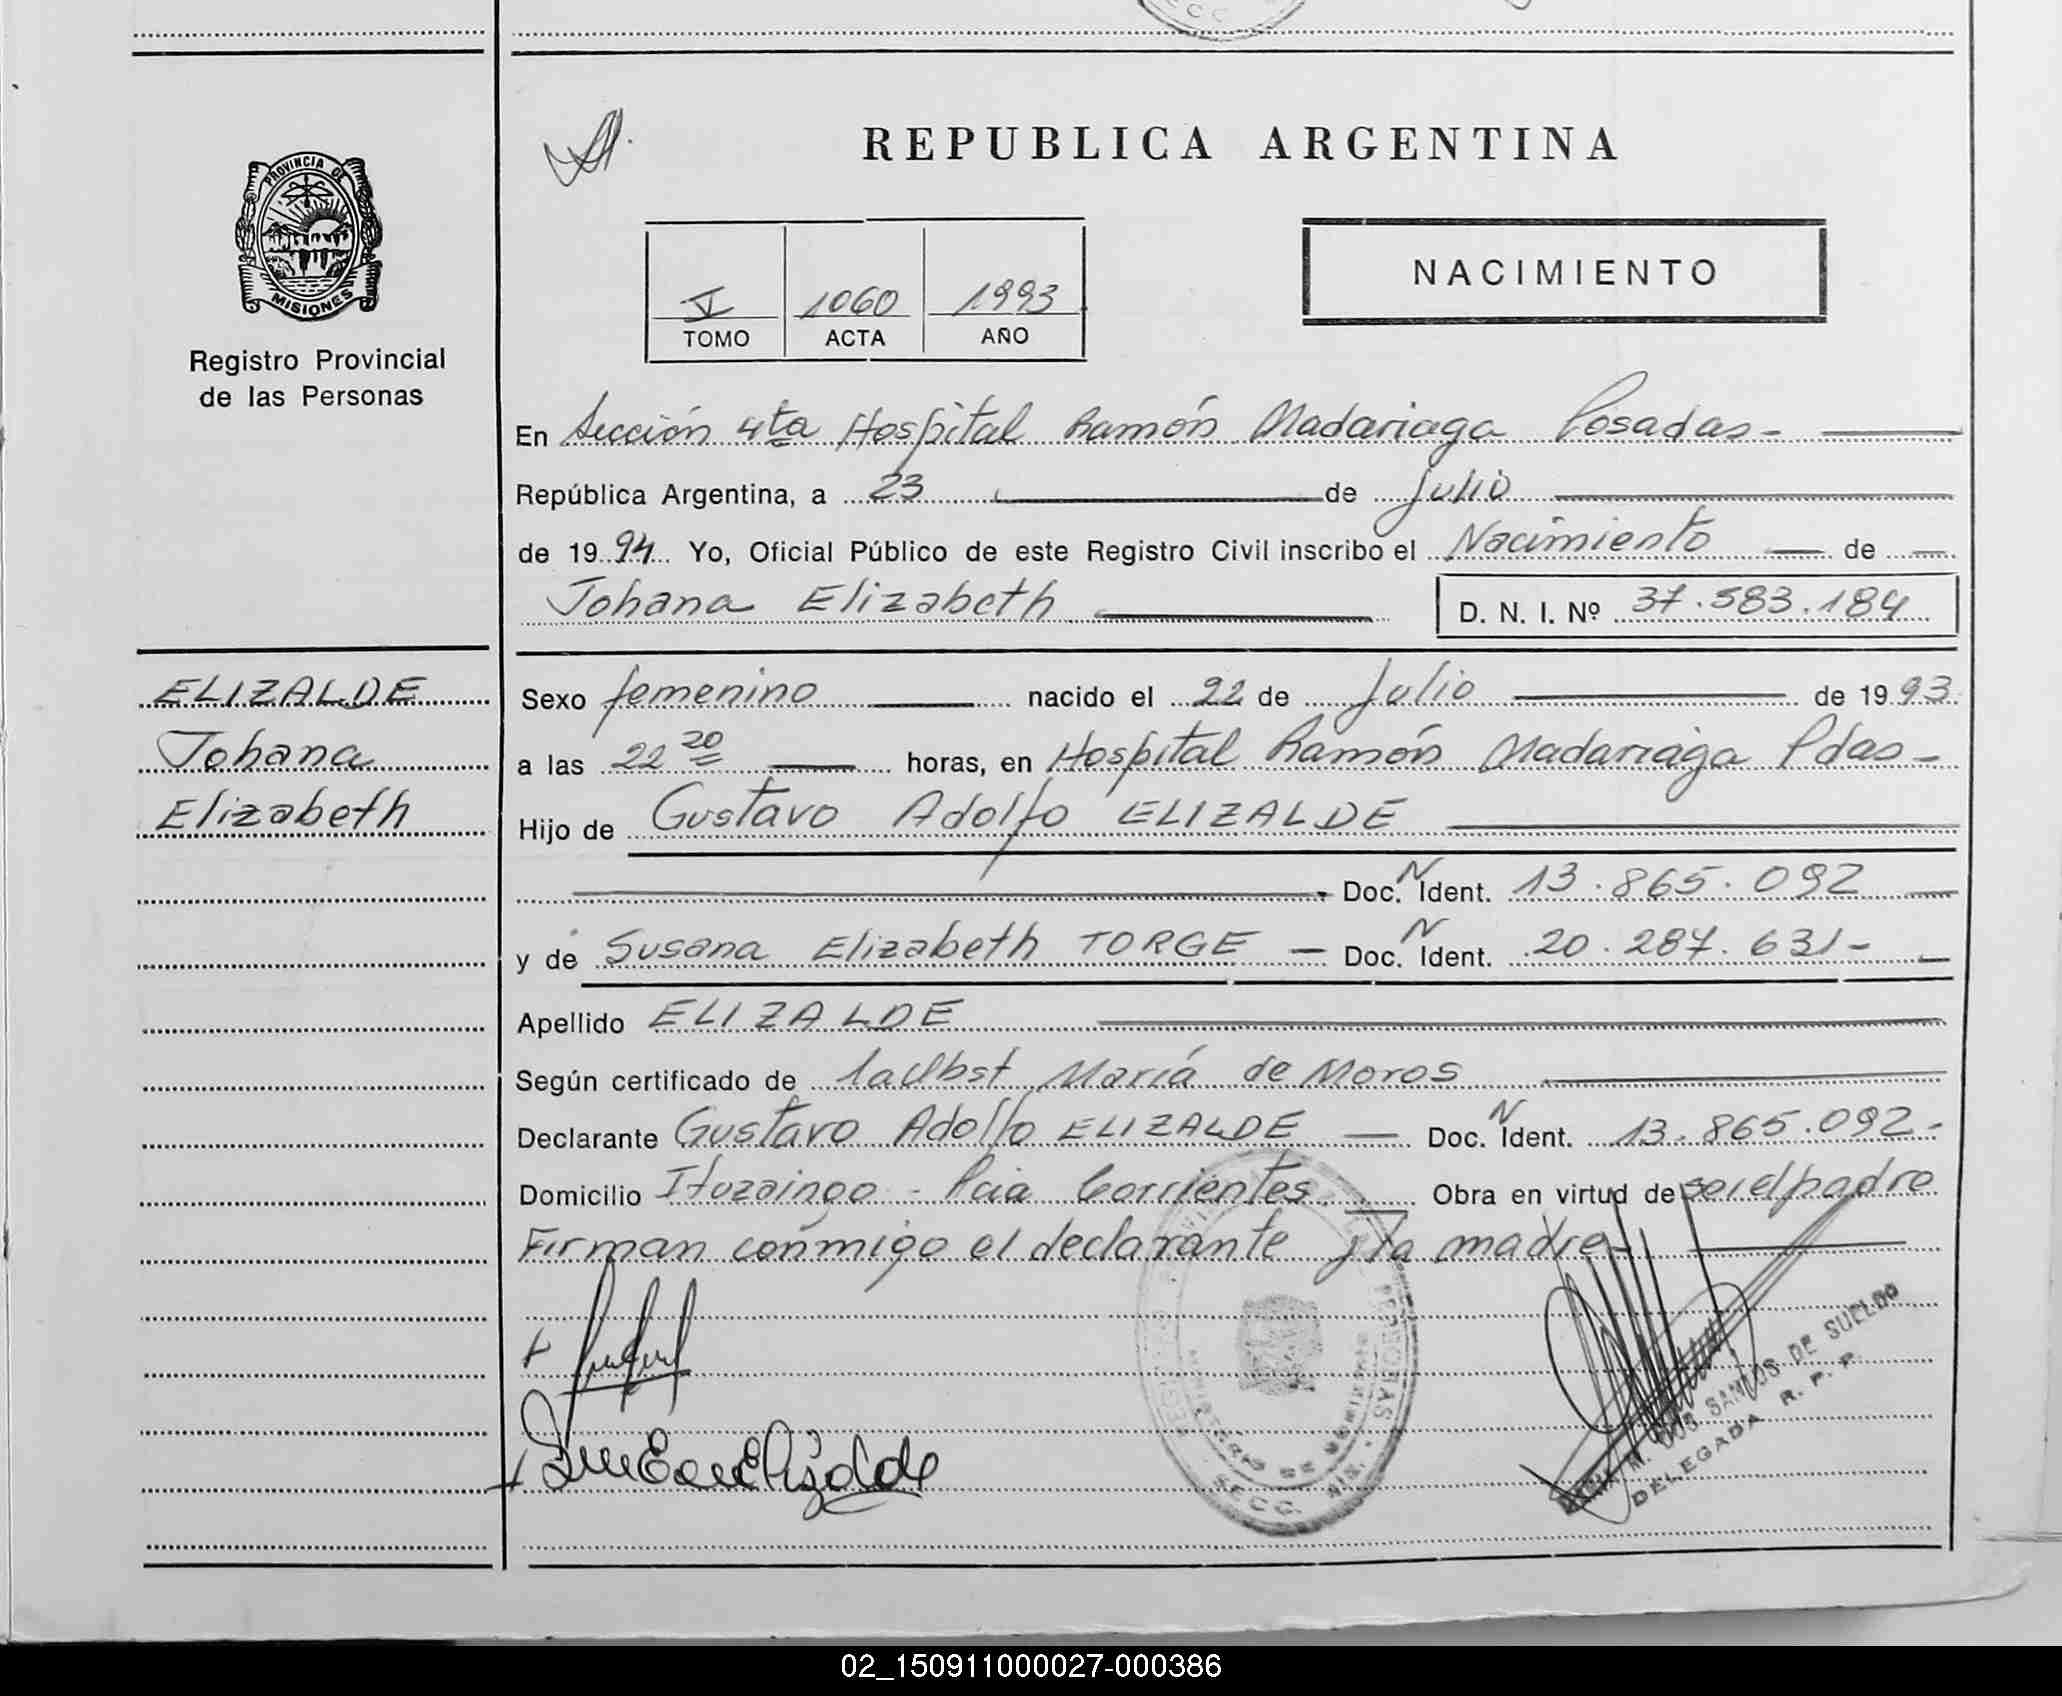 REPUBLICA ARGENTINA
PROVINCIA DE
MISIONES
Registro Provincial
de las Personas
V 1060 1993
TOMO ACTA AÑO
NACIMIENTO
En Sección 4ta Hospital Ramón Madariaga Posadas-
República Argentina, a 23 de julio
de 1994 Yo, Oficial Público de este Registro Civil inscribo el Nacimiento de
Johana Elizabeth D. N. I. Nº 37.583.184
ELIZALDE
Johana
Elizabeth
Sexo femenino nacido el 22 de julio de 1993
a las 22 20 horas, en Hospital Ramón Madariaga Pdas-
Hijo de Gustavo Adolfo ELIZALDE
Doc. N Ident. 13.865.092
y de Susana Elizabeth TORGE - Doc. N Ident. 20.287.631-
Apellido ELIZALDE
Según certificado de la Obst María de Moros
Declarante Gustavo Adolfo ELIZALDE - Doc. N Ident. 13.865.092-
Domicilio Ituzaingo - Pcia Corrientes. Obra en virtud de ser el padre
Firman conmigo el declarante y la madre-
SECC.
DOS SANTOS DE SUELDO
DELEGADA R. P. P.
02_150911000027-000386